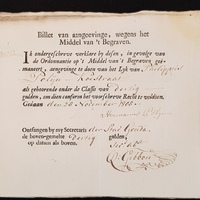 Billet van aangeevinge, wegens het
Middel van 't Begraven.
Ik ondergeschreve verklare by desen, in gevolge van
de Ordonnantie op 't Middel van 't Begraven geë-
maneert, aangevinge te doen van het Lyk van
als gehorende onder de Classis van Dertig
gulden, om daar conform het voorschreve Recht te voldoen.
Gedaan den 28 November 1805.
Ontfangen by my Secretaris der Stad Gouda
de boven-gemelte Dertig gulden,
op datum als boven.